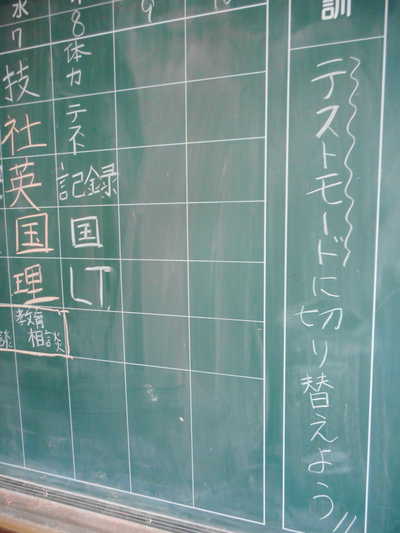 訓
テストモードに切り替えよう
9
8
体力テスト
記録
国
LT
水
7
技
社
英
国
理
教育
相談
談